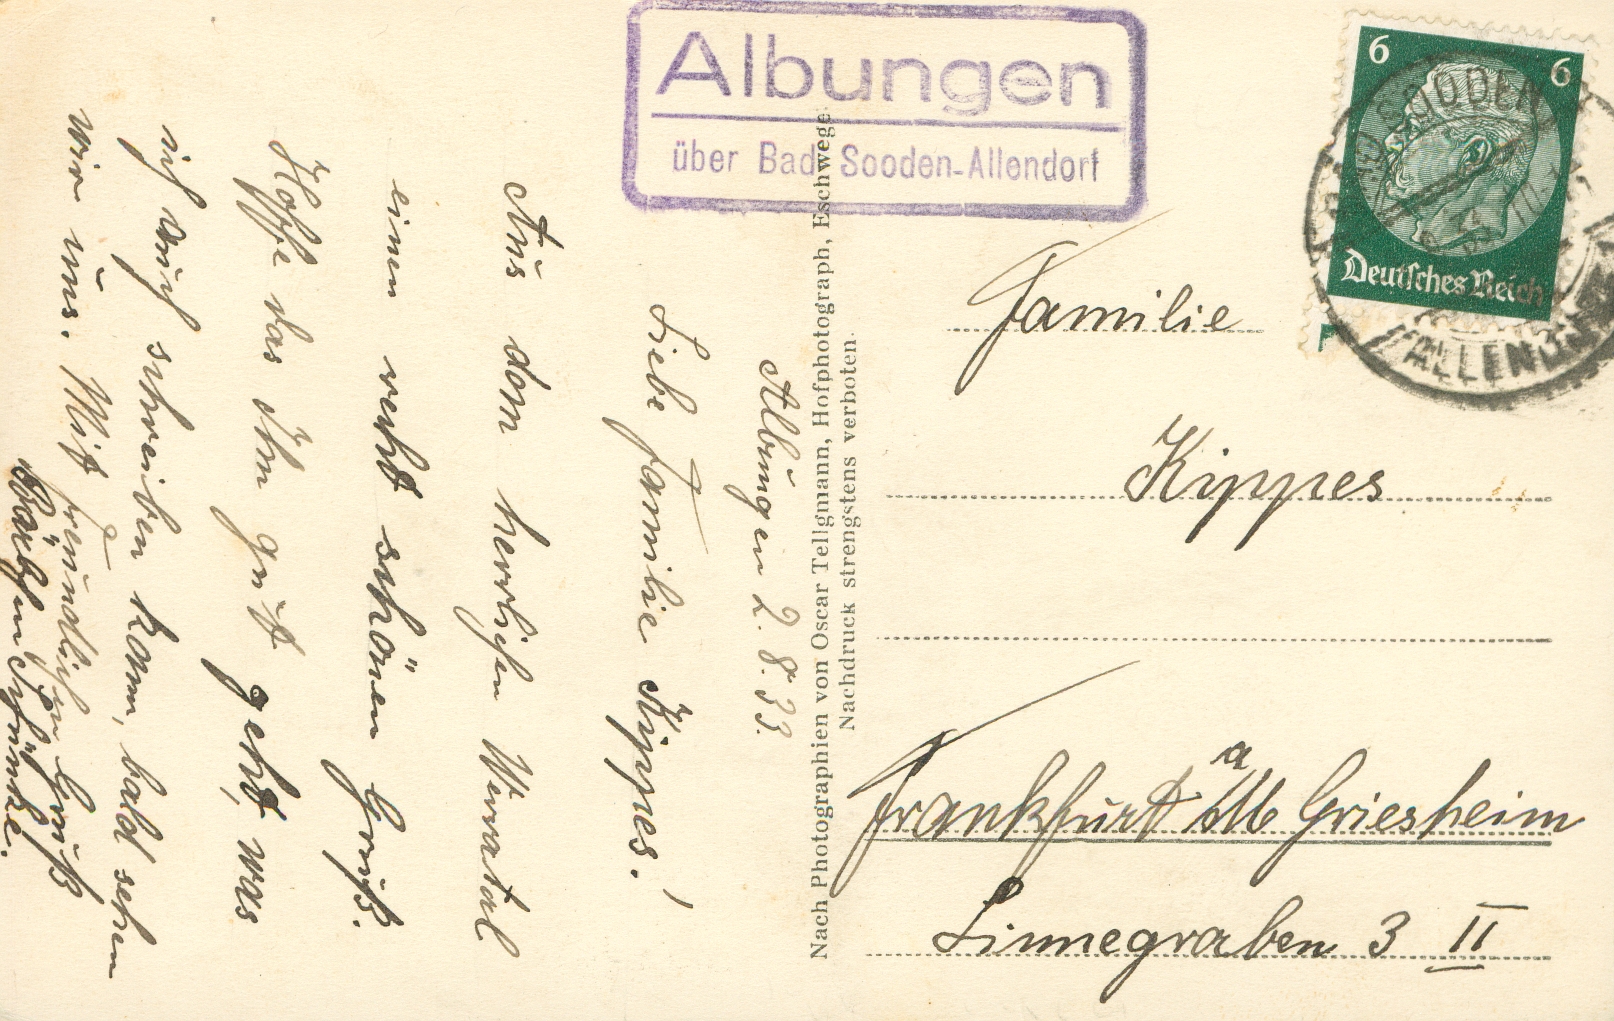 Albungen
über Bad Sooden-Allendorf
6 6
Deutsches Reich
Albungen 2.8.33.
Liebe Familie Kippes!
Aus dem herrlichen Werratal
einen recht schönen Gruß.
Hoffe das Ihn gut geht, was
ich auch schreiben kann, bald sehen
wir uns. Mit freundlichen Gruß
Nach Photographien von Oscar Tellgmann, Hofphotograph, Eschwege.
Nachdruck strengstens verboten.
Familie
Kippes
Frankfurt a/M Griesheim
Linnegraben 3 II